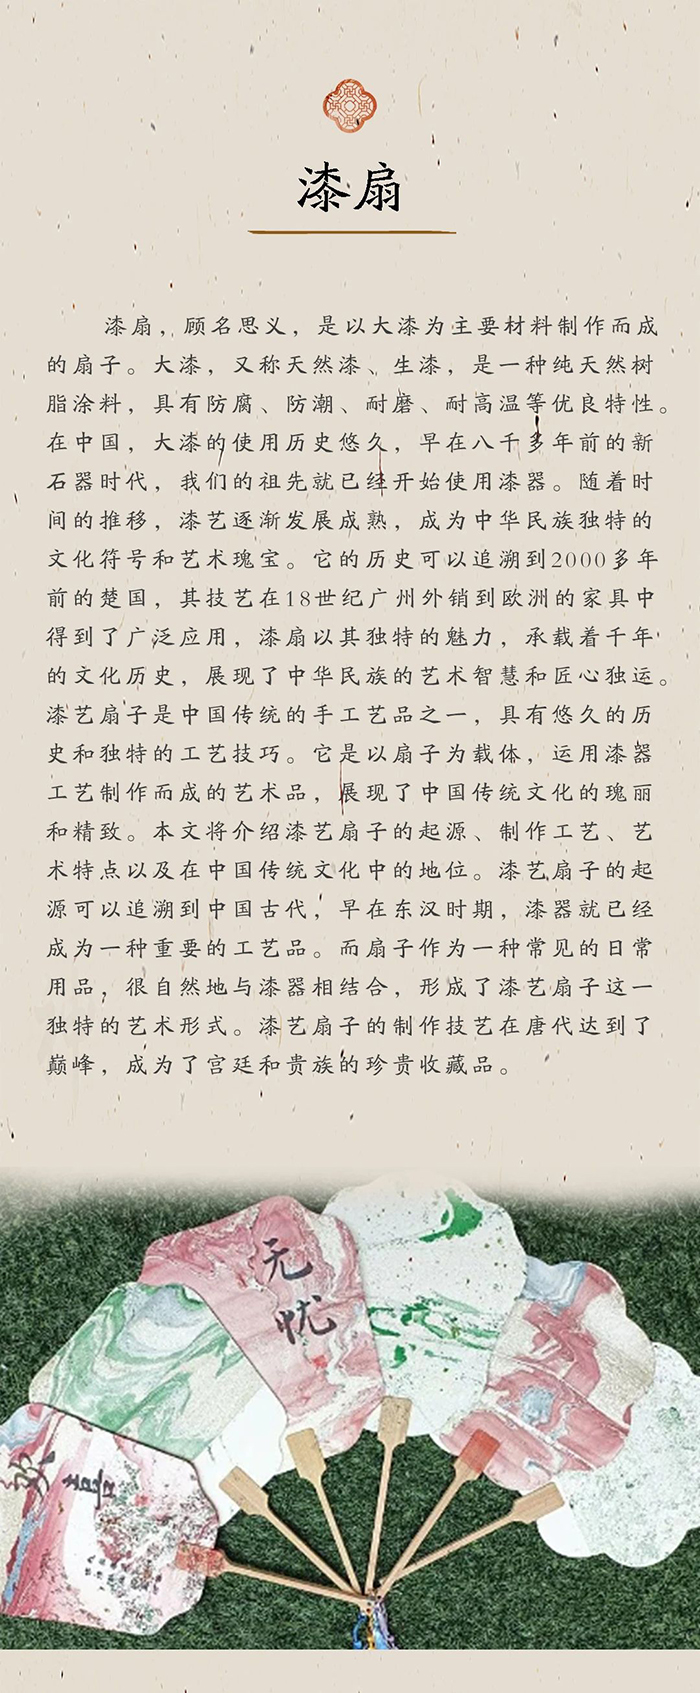 漆扇
漆扇，顾名思义，是以大漆为主要材料制作而成
的扇子。大漆，又称天然漆、生漆，是一种纯天然树
脂涂料，具有防腐、防潮、耐磨、耐高温等优良特性。
在中国，大漆的使用历史悠久，早在八千多年前的新
石器时代，我们的祖先就已经开始使用漆器。随着时
间的推移，漆艺逐渐发展成熟，成为中华民族独特的
文化符号和艺术瑰宝。它的历史可以追溯到2000多年
前的楚国，其技艺在18世纪广州外销到欧洲的家具中
得到了广泛应用，漆扇以其独特的魅力，承载着千年
的文化历史，展现了中华民族的艺术智慧和匠心独运。
漆艺扇子是中国传统的手工艺品之一，具有悠久的历
史和独特的工艺技巧。它是以扇子为载体，运用漆器
工艺制作而成的艺术品，展现了中国传统文化的瑰丽
和精致。本文将介绍漆艺扇子的起源、制作工艺、艺
术特点以及在中国传统文化中的地位。漆艺扇子的起
源可以追溯到中国古代，早在东汉时期，漆器就已经
成为一种重要的工艺品。而扇子作为一种常见的日常
用品，很自然地与漆器相结合，形成了漆艺扇子这一
独特的艺术形式。漆艺扇子的制作技艺在唐代达到了
巅峰，成为了宫廷和贵族的珍贵收藏品。
无
忧